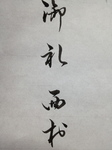 御礼 西村